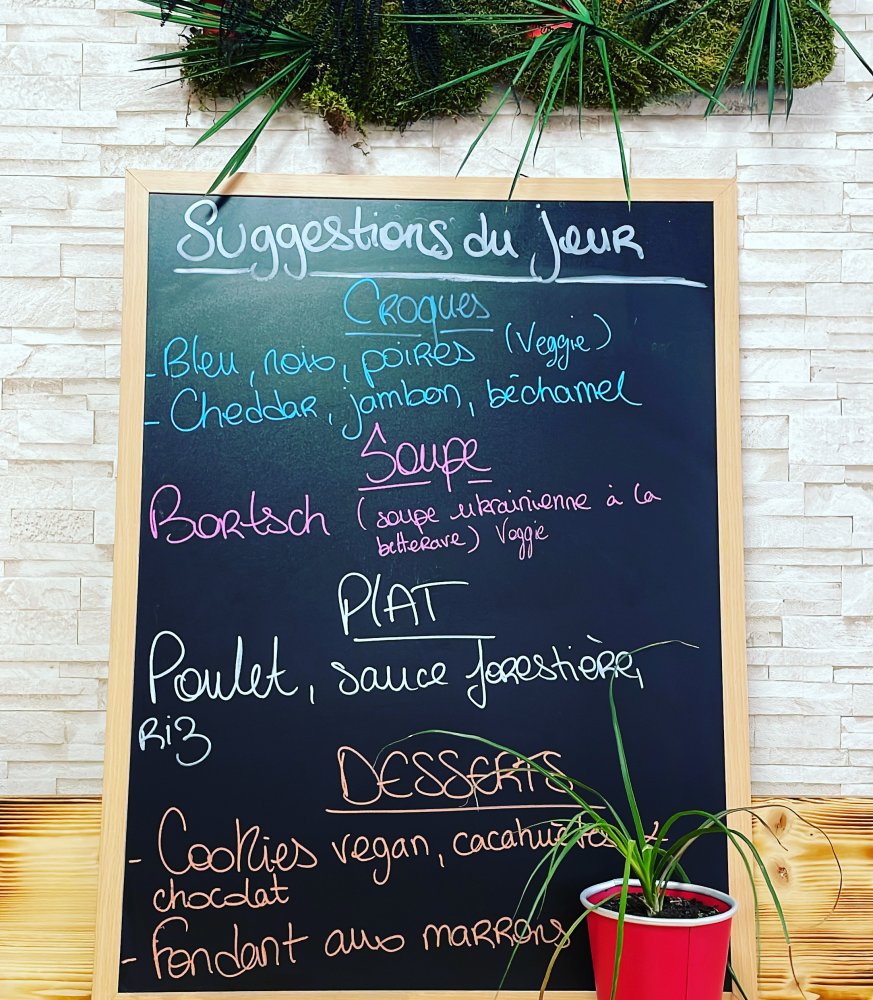 Suggestions du jour
Croques
- Bleu, noix, poires (Veggie)
- Cheddar, jambon, béchamel
Soupe
Bortsch (soupe ukrainienne à la
betterave) Veggie
PlAT
Poulet, sauce forestière,
Riz
DESSERTS
- Cookies vegan, cacahuètes +
chocolat
- Fondant aux marrons